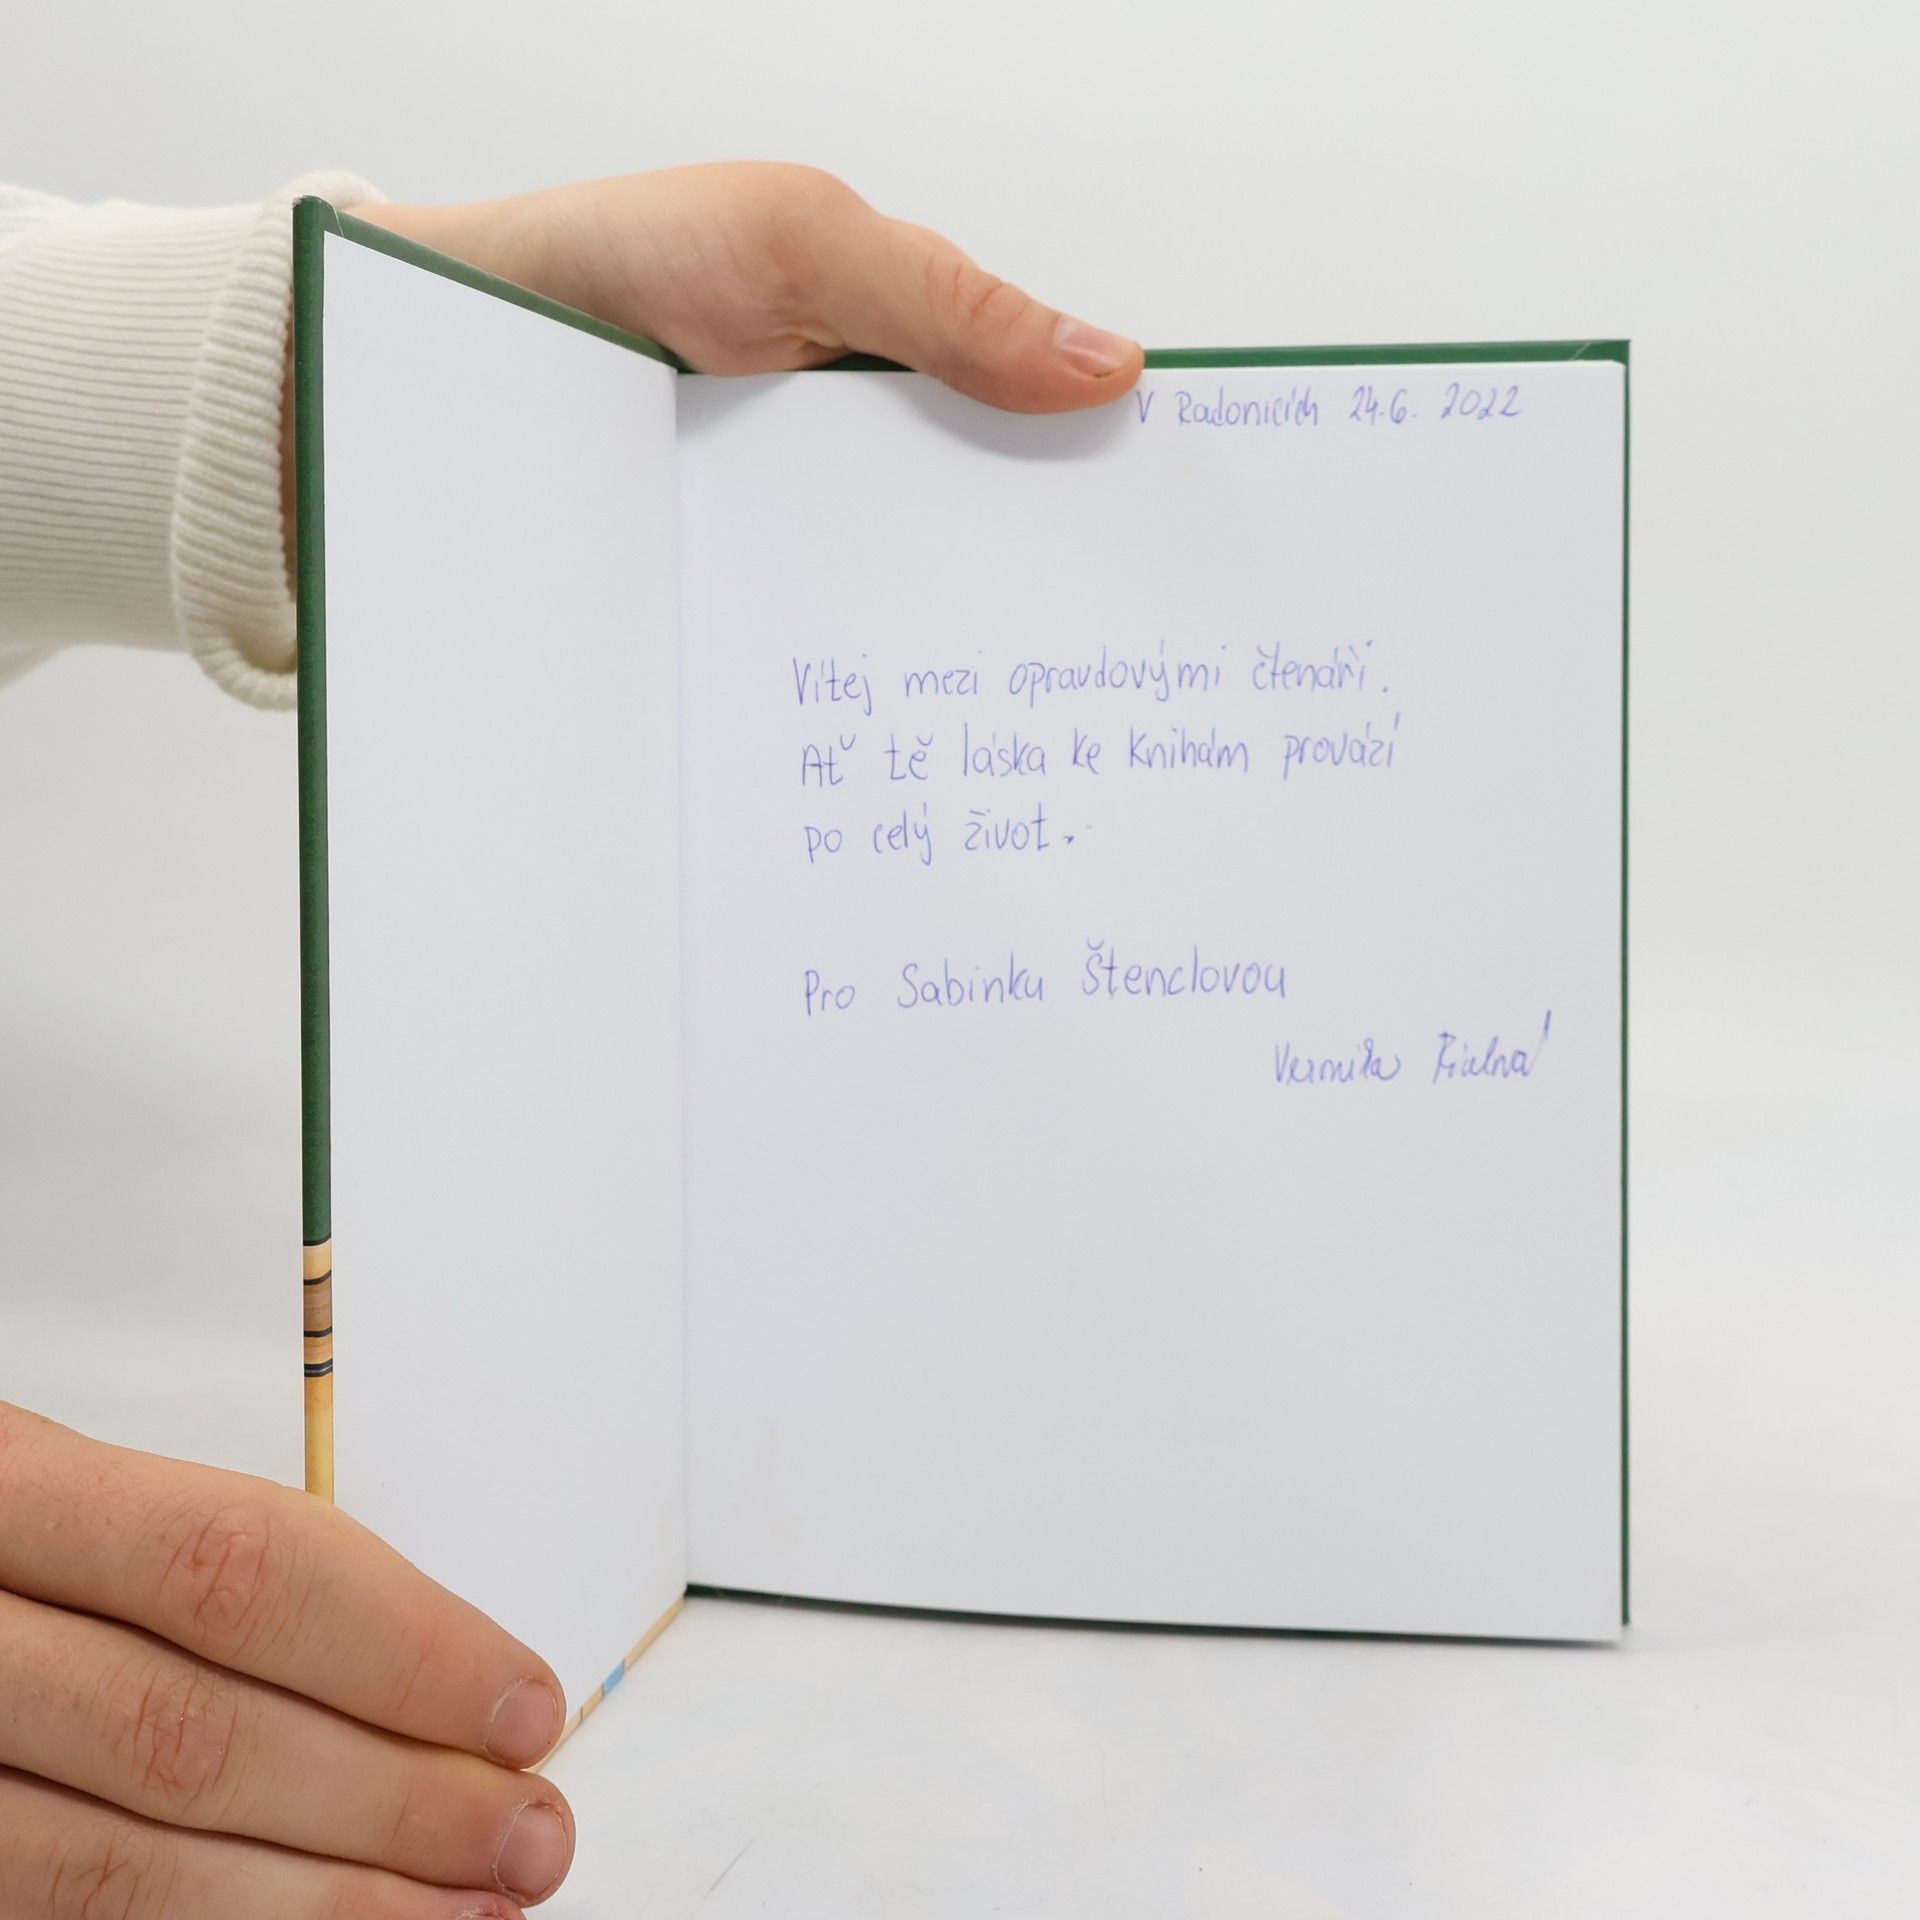 V Radonicích 24.6. 2022
Vítej mezi opravdovými čtenáři.
Ať tě láska ke knihám provází
po celý život.
Pro Sabinku Štenclovou